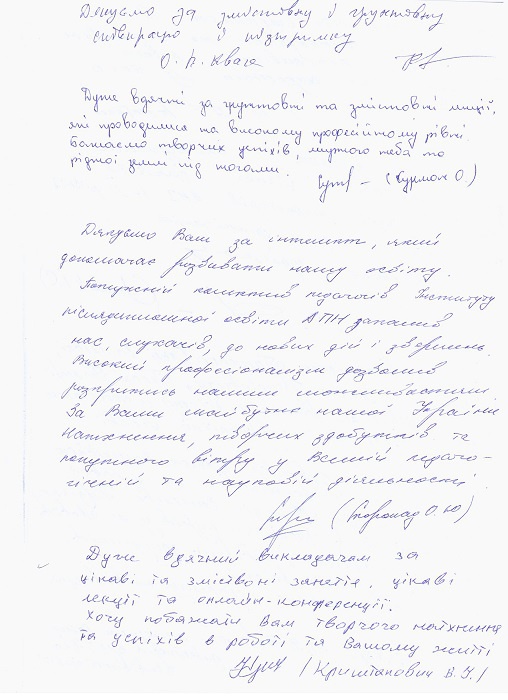 Дякуємо за змістовну і грунтовну
співпрацю і підтримку
О. П. Кваса
Дуже вдячні за грунтовні та змістовні лекції,
які проводилися на високому професійному рівні.
Бажаємо творчих успіхів, мирного неба та
рідної землі під ногами.
(Курмош О.)
Дякуємо Вам за інтелект, який
допомагає розвивати нашу освіту.
Потужній колектив педагогів Інституту
післядипломної освіти АПН запалив
нас, слухачів, до нових дій і звершень.
Високий професіоналізм дозволив
розкритись нашим можливостями.
За Вами майбутнє нашої України
Натхнення, творчих здобутків та
попутного вітру у Вашій педаго-
гічній та науковій діяльності.
О. Ю)
Дуже вдячний викладачам за
цікаві та змістовні заняття, цікаві
лекції та онлайн-конференції.
Хочу побажати Вам творчого натхнення
та успіхів в роботі та Вашому житті
/Криштапович В. У./